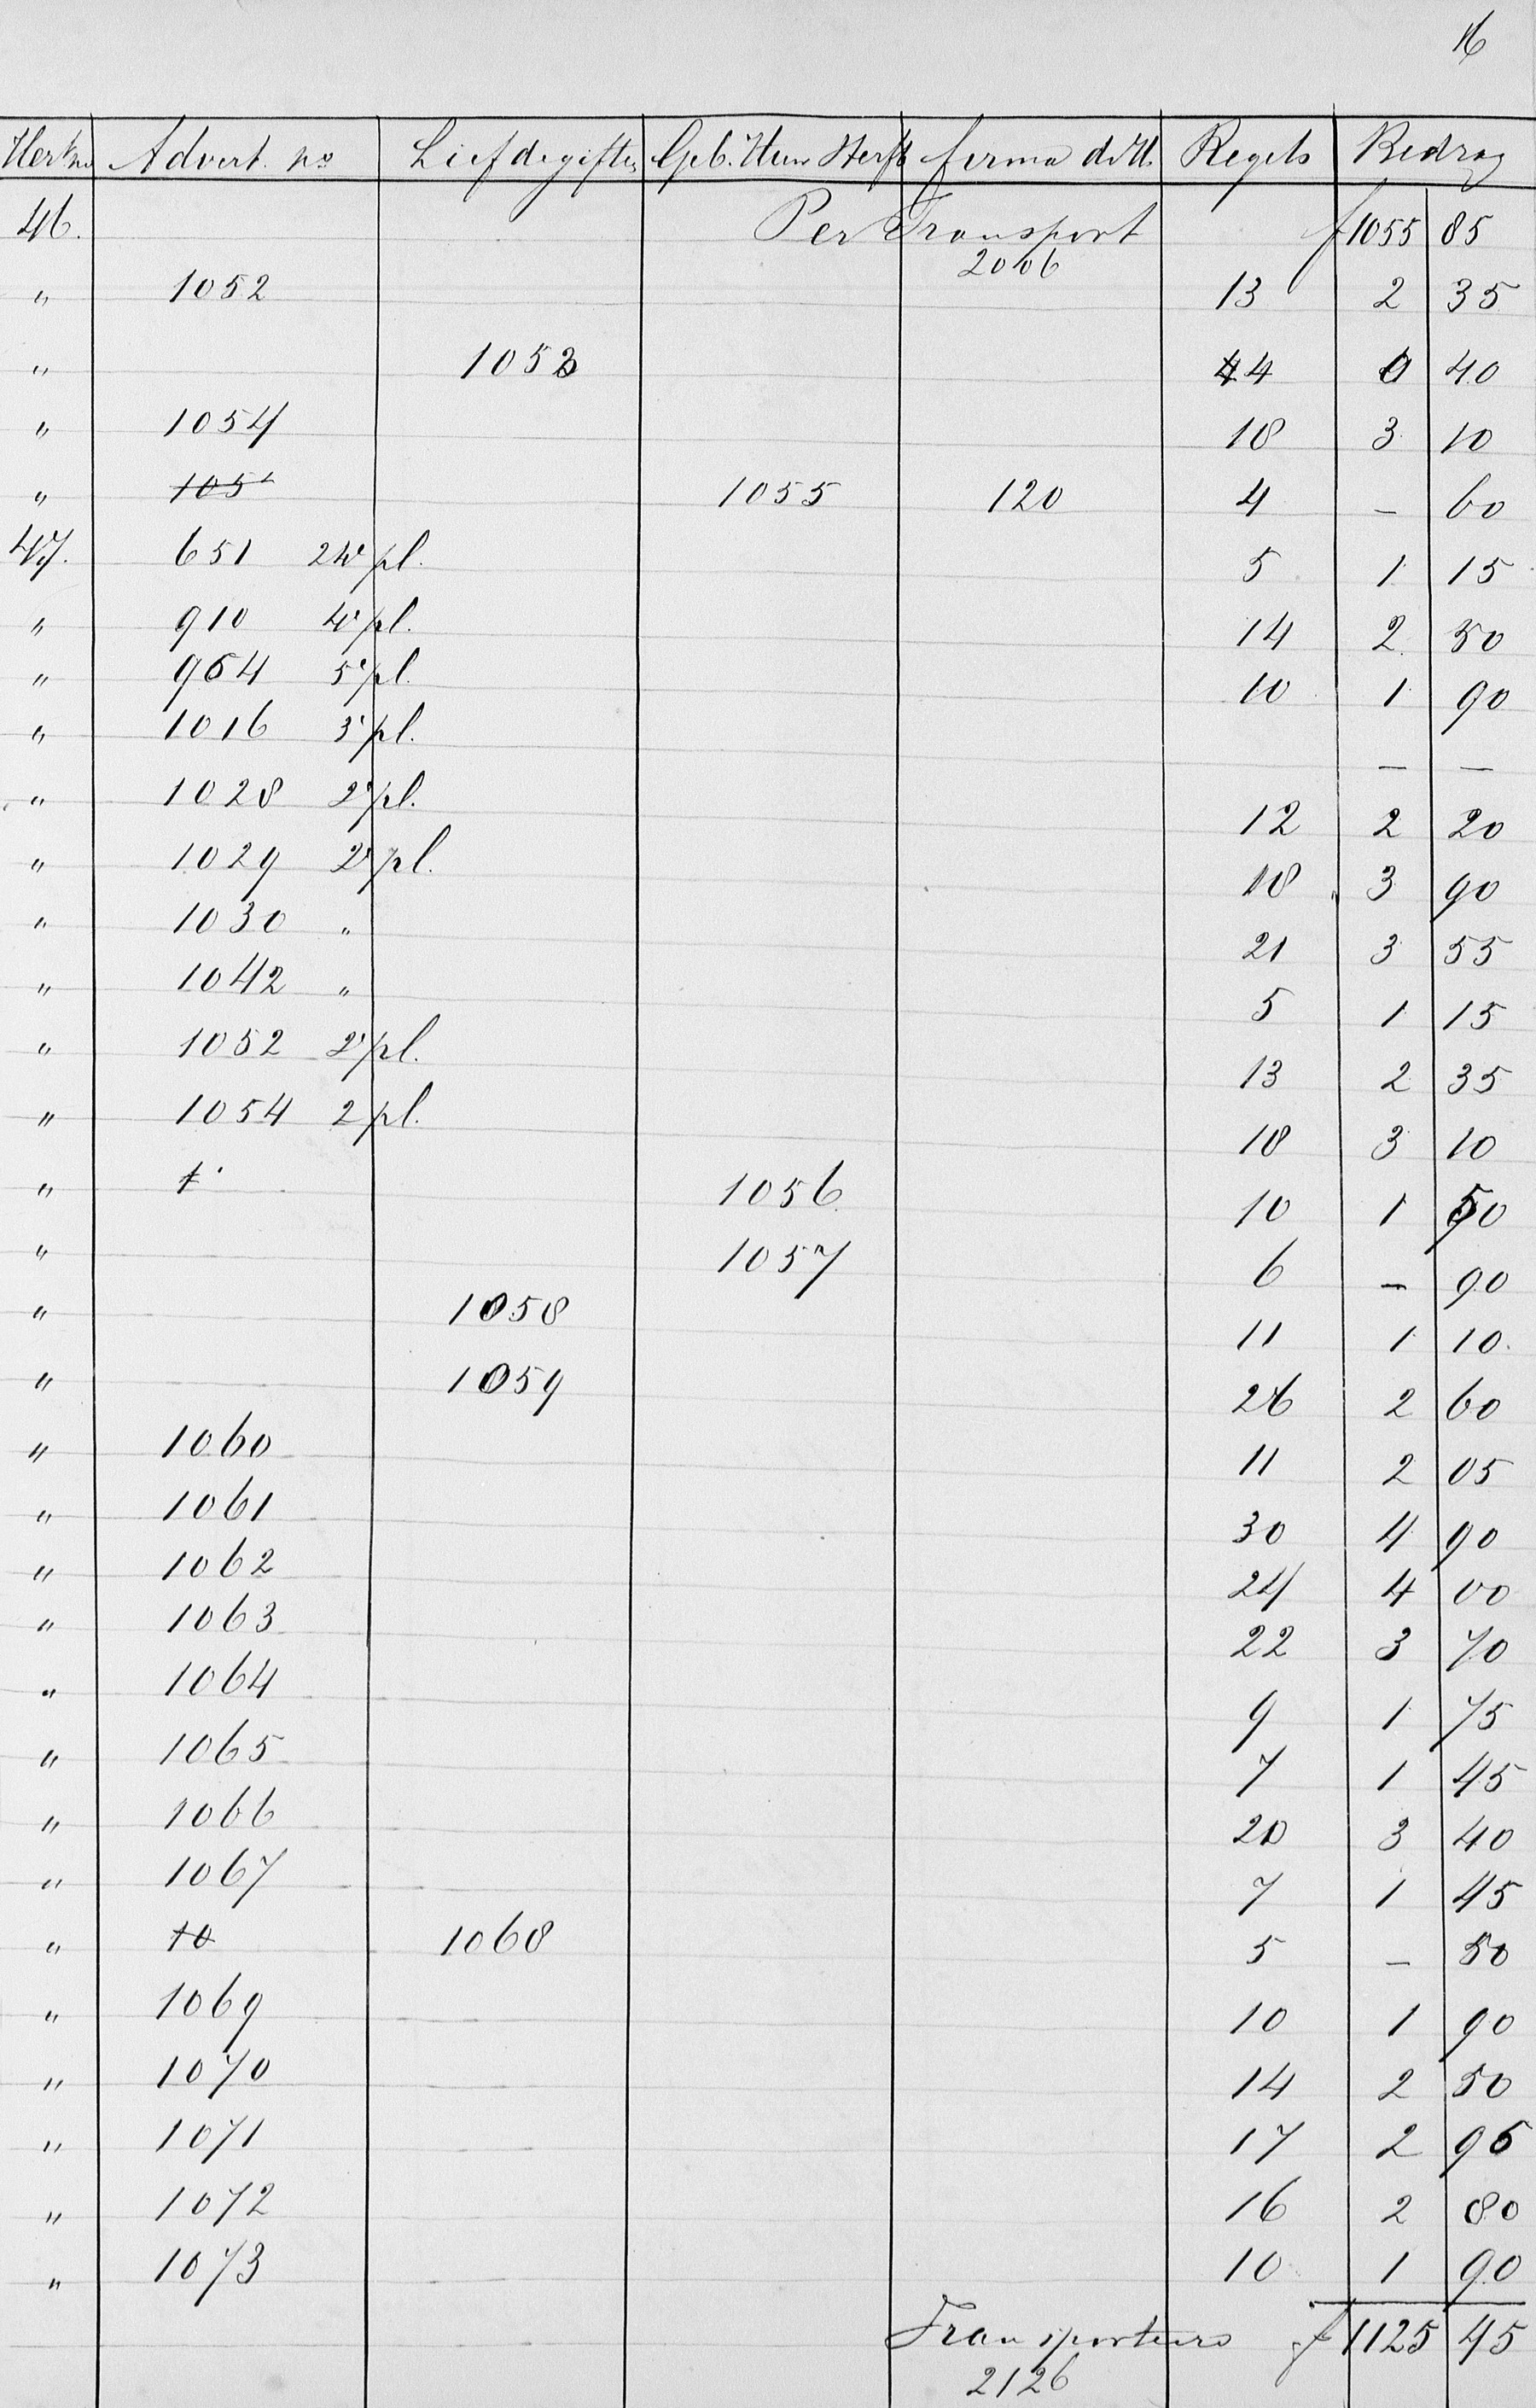 16
Herk no Advert. no Liefdegiften Geb. Huw Sterft firma ditt. Regels Bedrag
46. Per Transport f 1055 85
2006
" 1052 13 2 35
" 1053 4 0 40
" 1054 18 3 10
" 105 1055 120 4 — 60
47. 651 24e pl. 5 1 15
" 910 4e pl. 14 2 50
" 954 5e pl. 10 1 90
" 1016 3e pl. — —
" 1028 2e pl. 12 2 20
" 1029 2e pl. 18 3 90
" 1030 " 21 3 55
" 1042 " 5 1 15
" 1052 2e pl. 13 2 35
" 1054 2 pl. 18 3 10
" 1 1056 10 1 50
" 1057 6 — 90
" 1058 11 1 10
" 1059 26 2 60
" 1060 11 2 05
" 1061 30 4 90
" 1062 24 4 00
" 1063 22 3 70
" 1064 9 1 75
" 1065 7 1 45
" 1066 20 3 40
" 1067 7 1 45
" 10 1068 5 — 50
" 1069 10 1 90
" 1070 14 2 50
" 1071 17 2 95
" 1072 16 2 80
" 1073 10 1 90
Transporteere f 1125 45
2126